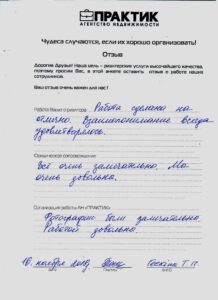 ПРАКТИК
АГЕНТСТВО НЕДВИЖИМОСТИ
Чудеса случаются, если их хорошо организовать!
Отзыв
Дорогие Друзья! Наша цель - риэлторские услуги высочайшего качества,
поэтому просим Вас, в этой анкете оставить отзыв о работе наших
сотрудников.
Ваш отзыв очень важен для нас!
Работа Вашего риэлтора Работа сделана на
отлично. Взаимопонимание всегда
удовлетворялось.
Юридическое сопровождение
Всё очень замечательно. Мы
очень довольны.
Организация работы АН «ПРАКТИК»
Фотографии были замечательно.
Работой довольна.
ноября
Т.П.